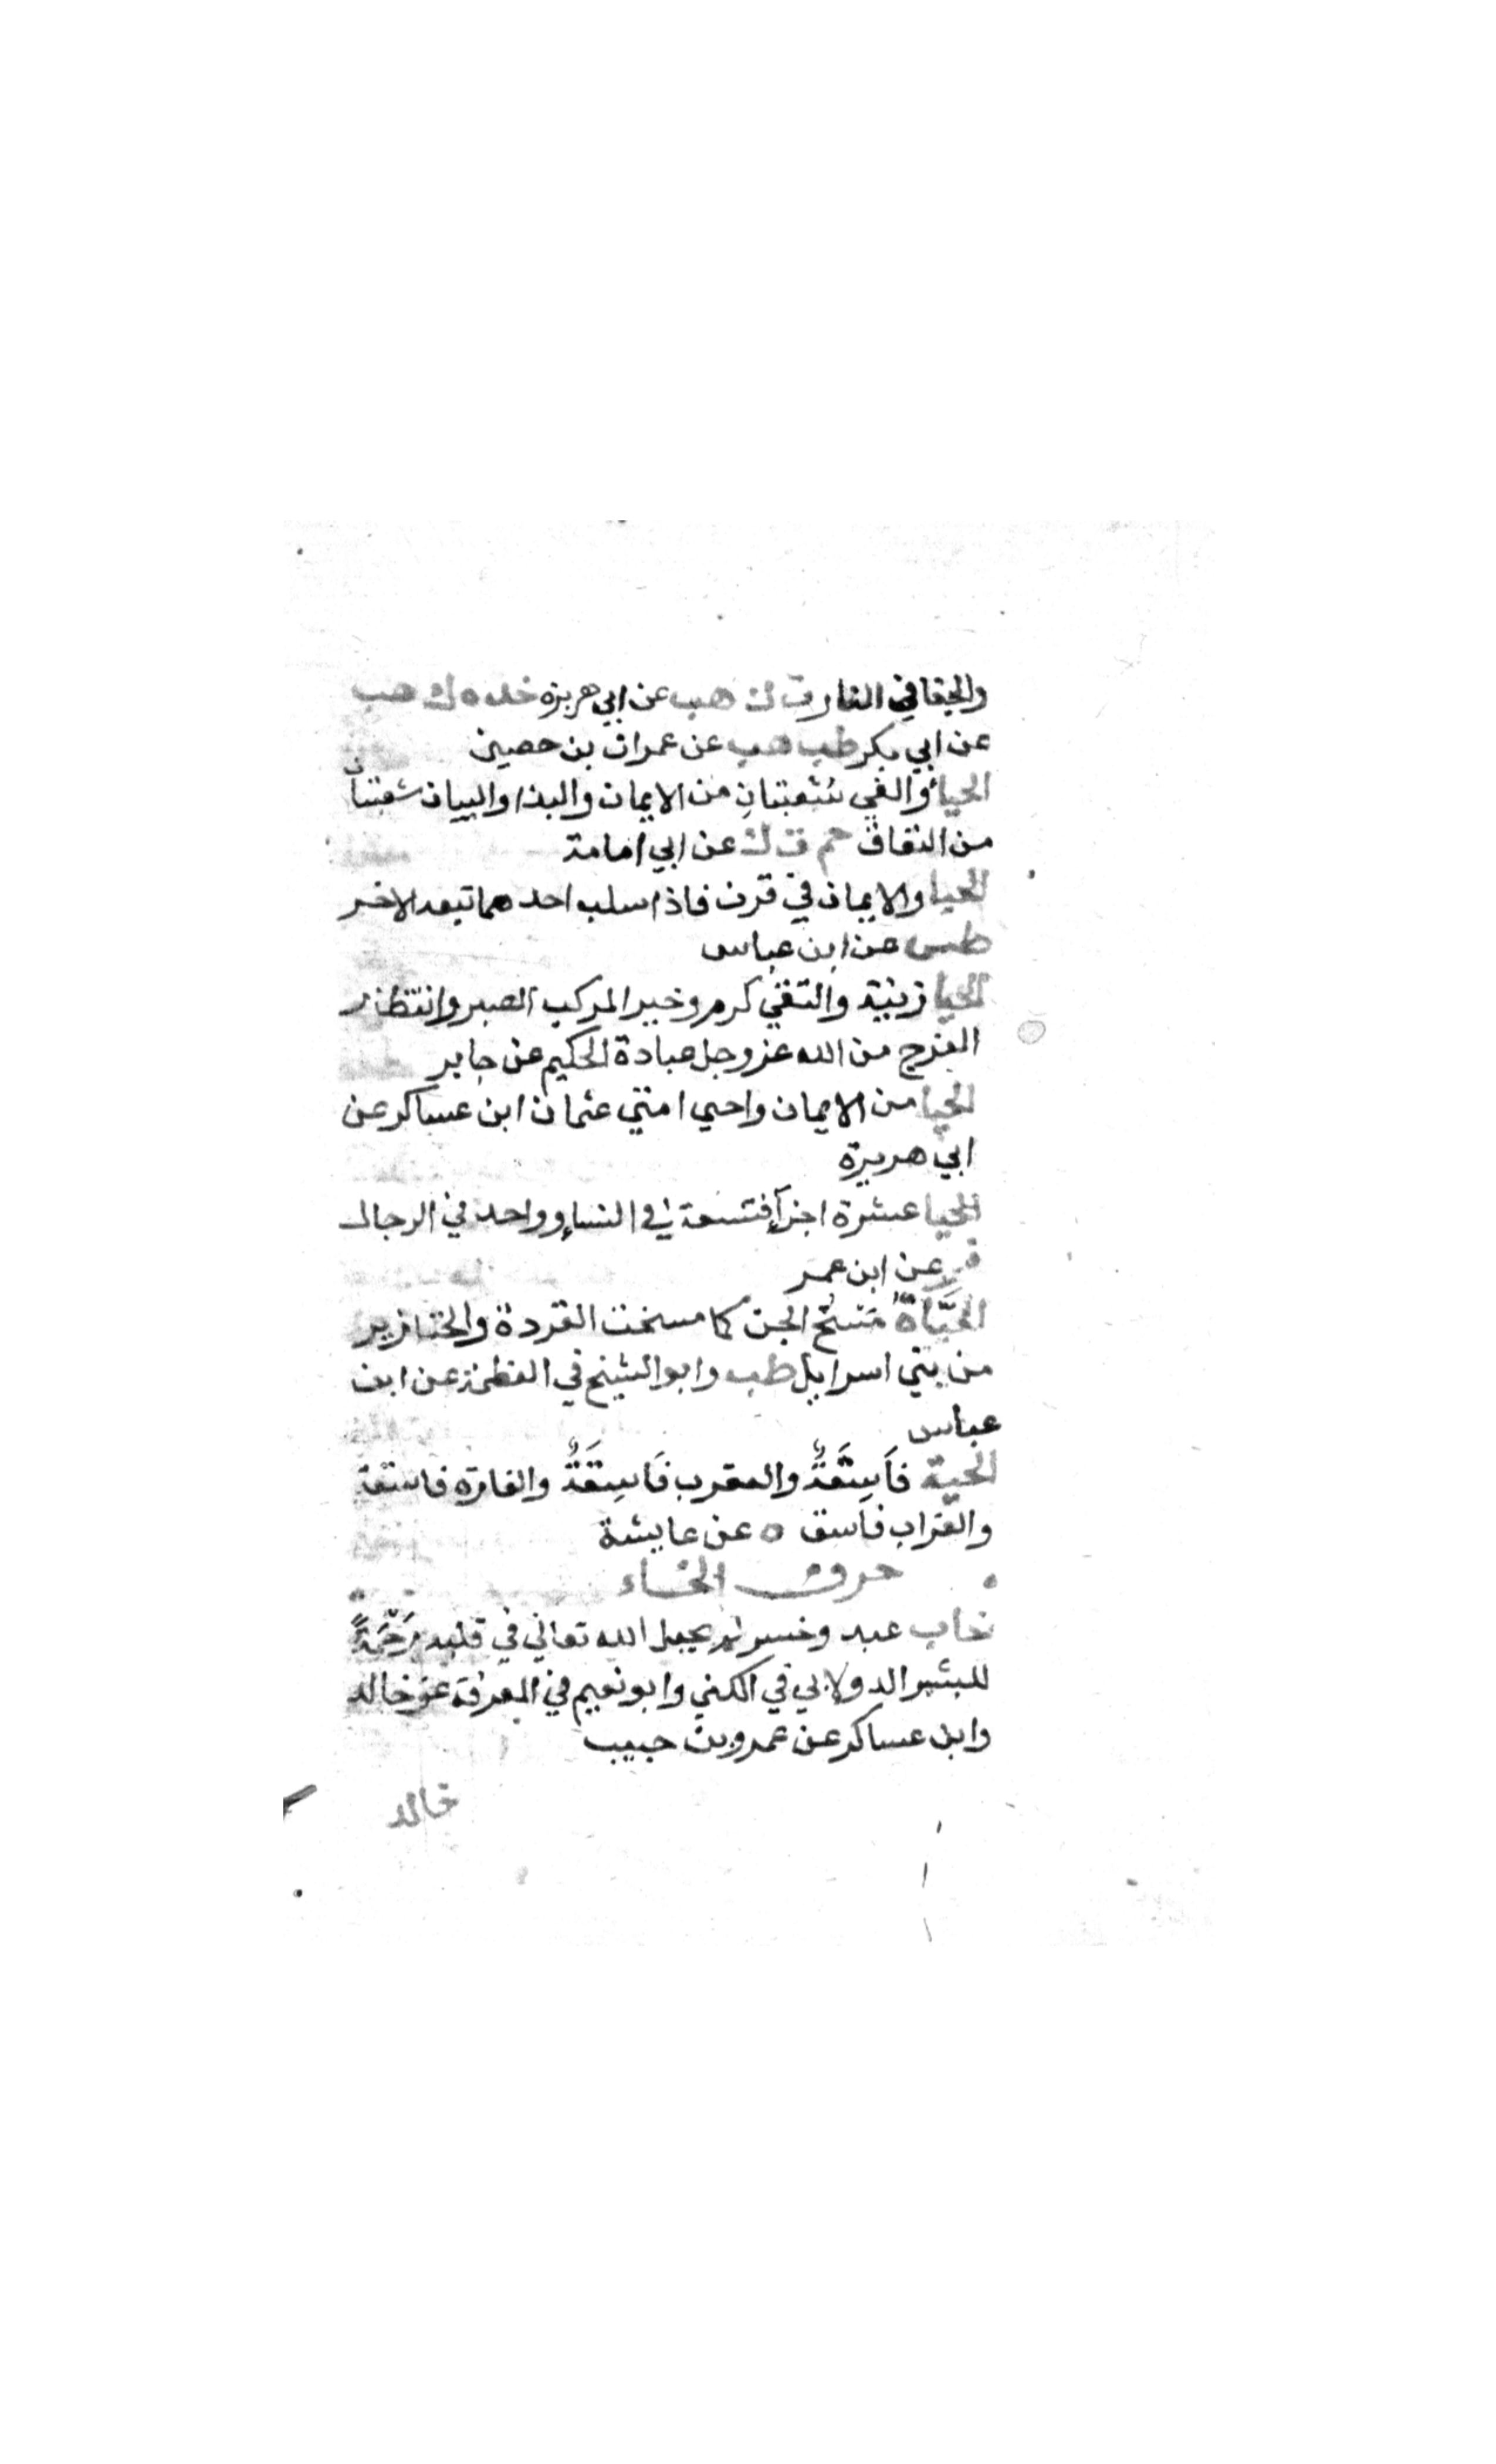 والجفا في النار ت ك هب عن ابي هريرة خد ه ك هب
عن ابي بكر طب هب عن عمران بن حصين
الحياُ والعي شعبتانِ من الايمان والبذا والبيان شعبتان
من النفاق حم ت ك عن ابي امامة
الحيا والايمان في قرن فاذا سلب احدهما تبعه الاخر
طس عن ابن عباس
الحيا زينة والتقي كرم وخير المركب الصبر وانتظار
الفرج من الله عز وجل عبادة الحكيم عن جابر
الحيا من الايمان واحيي امتي عثمان ابن عساكر عن
ابي هريرة
الحيا عشرة اجزآءٍ فتسعة في النساءِ وواحد في الرجال
فر عن ابن عمر
الحَيَّاةُ مَسْخُ الجن كما مسخت القردة والخنازير
من بني اسرايل طب وابو الشيخ في العظمة عن ابن
عباس
الحية فَاَسِقَةٌ والعقرب فَاسِقَةٌ والفارة فاسقة
والغراب فاسق ه عن عايشة
حرف الخاء
خاب عبد وخسر لم يجعل الله تعالي في قلبه رَحْمَةً
للبشر الدولابي في الكني وابو نعيم في المعرفة عن خالد
وابن عساكر عن عمرو بن حبيب
خالد